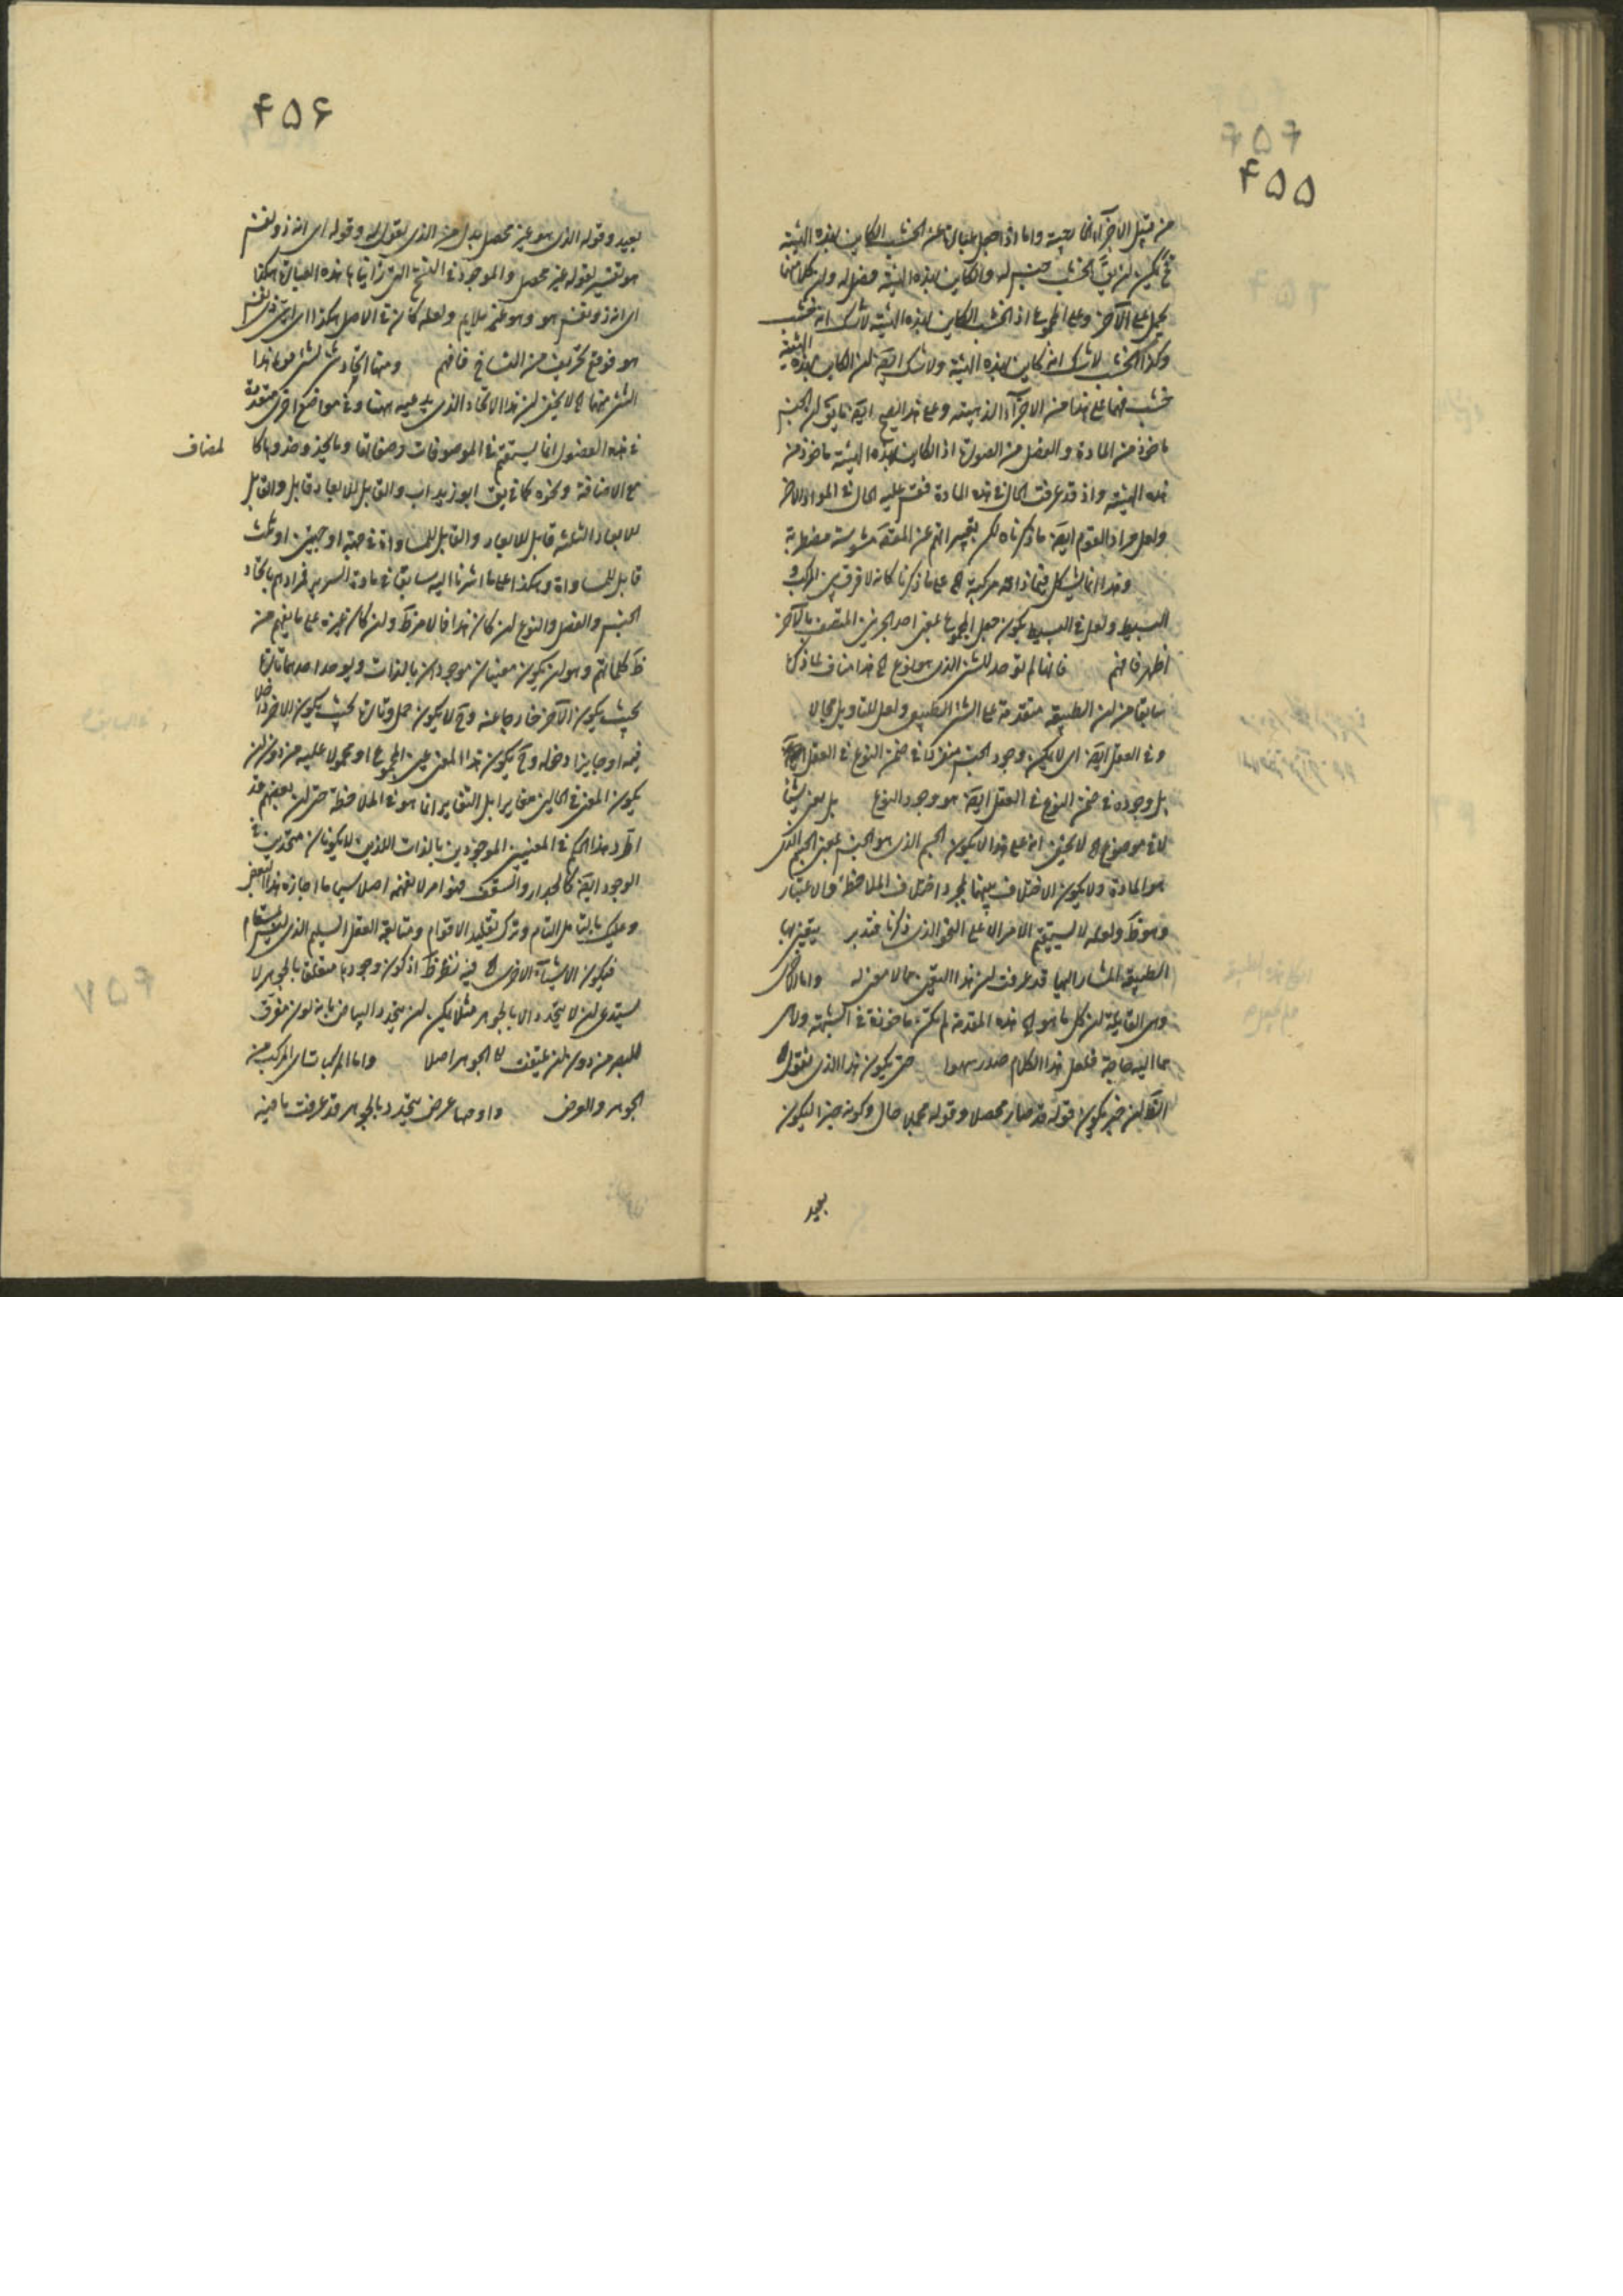 ۴۵۵
من قبيل الاجزاء الخارجية واما اذا جعل عبارة عن الخشب الكاين بهذه الهيئة
فح يمكن ان يق الخشب جنس له والكاين بهذه الهيئة فصل له وان كلا منهما
يحمل على الآخر وعلى المجموع اذ الخشب الكاين بهذه الهيئة لا شك انه خشب
وكذا الخشب لا شك انه كاين بهذه الهيئة ولا شك ايضا ان الكاين بهذه الهيئة
خشب فهما على هذا من الاجزاء الذهنية وعلى هذا يصح ايضا ما يق ان الجنس
ماخوذ من المادة والفصل من الصورة اذ الكاين بهذه الهيئة ماخوذ من
هذه الهيئة واذ قد عرفت الحال في هذه المادة فقس عليه الحال في المواد الاخر
ولعل مراد القوم ايضا ما ذكرناه لكن تعبيراتهم عن المقصد مشوشة مضطربة
وهذا انما يشكل فيما ذاته مركبة الخ على ما ذكرنا كانه لا فرق بين المركب و
البسيط ولعل في البسيط يكون جعل المجموع بمعنى احد الجزئين المتصف بالآخر
اظهر فافهم فانها لم توجد للشئ الذي هو نوع الخ هذا مناف لما ذكره
سابقا من ان الطبيعة متقدمة على الشئ الطبيعي ولعل للتاويل مجالا
وفي العقل ايضا اى لا يمكن وجود الجنس منفركا في ضمن النوع في العقل ايضا
بل وجوده في ضمن النوع في العقل ايضا هو وجود النوع بل يعنى شيئا
لا في موضوع الخ لا يخفى انه على هذا لا يكون الجسم الذي هو الجنس بمعنى الجسم الذي
هو المادة ولا يكون الاختلاف بينهما بمجرد اختلاف الملاحظة والاعتبار
وهو ظ ولعله لا يستقيم الامر الا على النحو الذي ذكرنا فتدبر يتعين بها
الطبيعة المشار اليها قد عرفت ان هذا التعين مما لا معنى له واما الاخرى
وهي القايلة ان كل ما هو الخ هذه المقدمة لم تكن ماخوذة في الشبهة ولا هى
مما اليه حاجة فلعل هذا الكلام صدر سهوا حتى يكون هذا الذي نقول الخ
الظ ان خبر يكون قوله قد صار محصلا وقوله مجملا حال وكونه خبرا ليكون
بعيد
۴۵۶
بعيد وقوله الذي هو غير محصل بدل من الذي نقول له وقوله اى انه ذو نفس
هو تفسير لقوله غير محصل والموجود في النسخ التى رايناها هذه العبارة هكذا
اى انه ذو نفس هو وهو غير ملايم ولعله كان في الاصل هكذا اى اى شئ ذى نفس
هو فوقع تحريف من النساخ فافهم ومنها اتحاد شئ بشئ قوة هذا
الشئ منهما الخ لا يخفى ان هذا الاتحاد الذي يدعيه ههنا وفي مواضع اخرى متقدمة
في هذه الفصول انما يستقيم في الموصوفات وصفاتها وما يحذو حذوها كا لمضاف
مع الاضافة ونحوه كما يق ابو زيد اب والقابل للابعاد قابل والقابل
للابعاد الثلثة قابل للابعاد والقابل للمساواة في جهة او جهتين او ثلث
قابل للمساواة وهكذا على ما اشرنا اليه سابقا في مادة السرير فمرادهم باتحاد
الجنس والفصل والنوع ان كان هذا فالامر ظ وان كان غيره على ما يفهم من
ظ كلماتهم وهو ان يكون معنيان موجودان بالذات ويوجد احدهما تارة
بحيث يكون الآخر خارجا عنه وح لا يكون حمل وتارة بحيث يكون الآخر داخل
فيه او جايزا دخوله وح يكون هذا المعنى عين المجموع او محمولا عليه من دون ان
يكون المعنى في الحالين متغايرا بل التغاير انما هو في الملاحظة حتى ان بعضهم قد
اطرد هذا الحكم في المعنيين الموجودين بالذات اللذين لا يكونان متحدين في
الوجود ايضا كالجدار والسقف فهو امر لا نفهمه اصلا سيما ما اجازه هذا البعض
وعليك بالتامل التام وترك تقليد الاقوام ومتابعة العقل السليم الذي ليس بسقام
فيكون الاشياء الاخرى الخ فيه نظر ظ اذ كون وجودها متعلقا بالجوهر لا
يستدعى ان لا يتحدد الا بالجوهر مثلا يمكن ان يتحدد البياض بانه لون مفرق
للبصر من دون ان يلتفت الى الجوهر اصلا واما المركبات اى المركب من
الجوهر والعرض واوضحها عرض يتحدد بالجوهر قد عرفت ما فيه